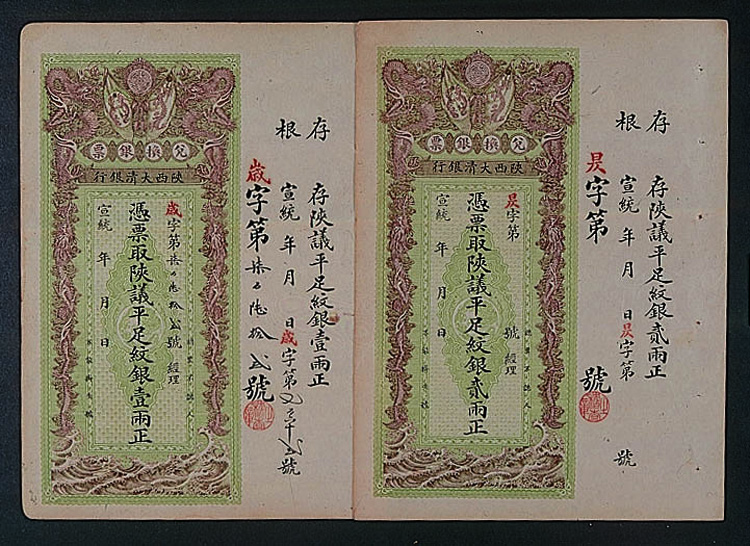 兌換銀票
陝西大清銀行
歲字第柒百陸拾弍號 經理
憑票取陝議平足紋銀壹兩正
宣統 年 月 日
認票不認人
存根
存陝議平足紋銀壹兩正
宣統 年 月 日歲字第 號
歲字第柒百陸拾弍號
兌換銀票
陝西大清銀行
昃字第 號 經理
憑票取陝議平足紋銀貳兩正
宣統 年 月 日
認票不認人
存根
存陝議平足紋銀貳兩正
宣統 年 月 日昃字第 號
昃字第 號